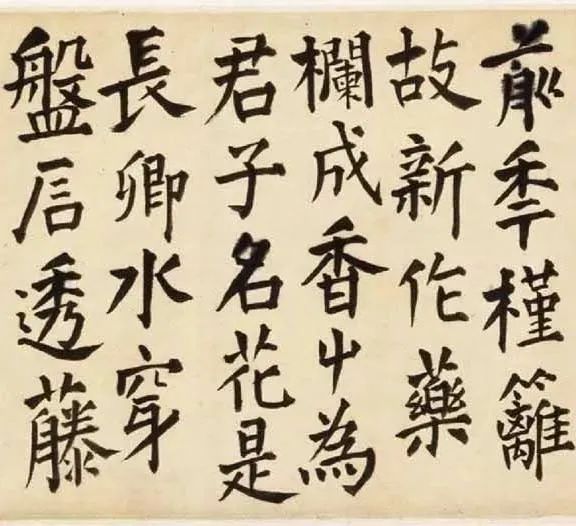 前秊槿籬
故新作藥
欄成香屮為
君子名花是
長卿水穿
盤石透藤